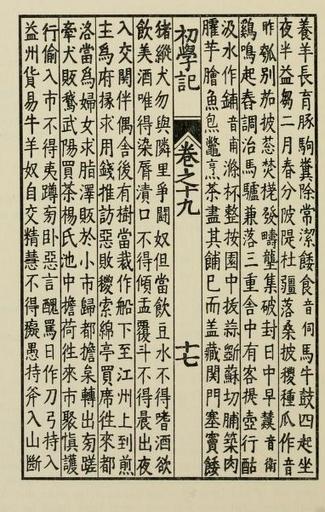 養羊長育豚駒糞除常潔餧食音伺馬牛鼓四起坐
夜半益芻二月春分陂隄杜疆落桑披稷種瓜作音
昨瓠別茄披葱焚槎發疇壟集破封日中早音衛
鷄鳴起舂調治馬驢兼落三重舍中有客提壺行酤
汲水作餔音甫滌杯整按園中拔蒜斷蘇切脯築肉
臛芋膾魚炰鼈烹茶盡其餔已而蓋藏關門塞竇餧
初學記 卷之十九 十七
猪縱犬勿與隣里爭鬪奴但當飲豆水不得嗜酒欲
飲美酒唯得染脣漬口不得傾盂覆斗不得晨出夜
入交關伴偶舍後有樹當裁作船下至江州上到煎
主爲府掾求用錢推訪惡敗索綿亭買席往來都
洛當爲婦女求脂澤販於小市歸都擔枲轉出旁蹉
牽犬販鵞武陽買茶楊氏池中擔荷往來市聚慎護
行偷入市不得夷蹲旁卧惡言醜罵日作刀弓持入
益州貨易牛羊奴自交精慧不得癡愚持斧入山斷